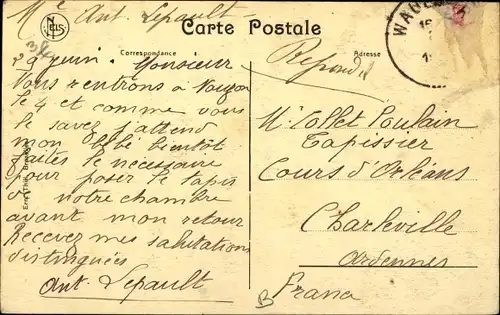 Mᵉ Ant. Lepault
NELS
Carte Postale
WAUL
Correspondance
Adresse
29 juin. Monsieur
Vous rentrons à
le 4 et comme vous
le savez j'attend
mon bébé bientôt
faites le nécessaire
pour poser le tapis
d notre chambre
avant mon retour
Recevez mes salutations
distinguées
Ant. Lepault
Ern. Thill, Bruxelles
Repondu
Mʳ Collet Poulain
Tapissier
Cours d'Orléans
Charleville
Ardennes
France
B